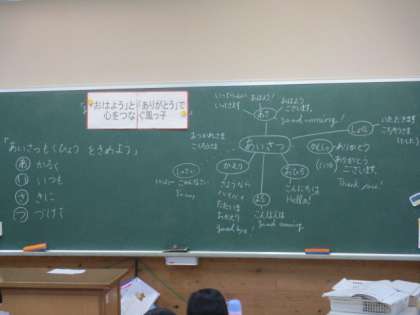 「おはよう」と「ありがとう」で
心をつなぐ風っ子
「あいさつもくひょう をきめよう」
あ かるく
い いつも
さ きに
つ づけて
あいさつ
あさ
いってらっしゃい
いってきます
おはよう!
おはよう
ございます。
Good morning!
しょくじ
いただきます
ごちそうさま
かんしゃ
ありがとう
ありがとう
ございます。
Thank you!
おひる
こんにちは
Hello!
よる
こんばんは
Good evening
かえり
さようなら
ただいま
おかえり
Good bye!
ごめんなさい
Sorry
おつかれさま